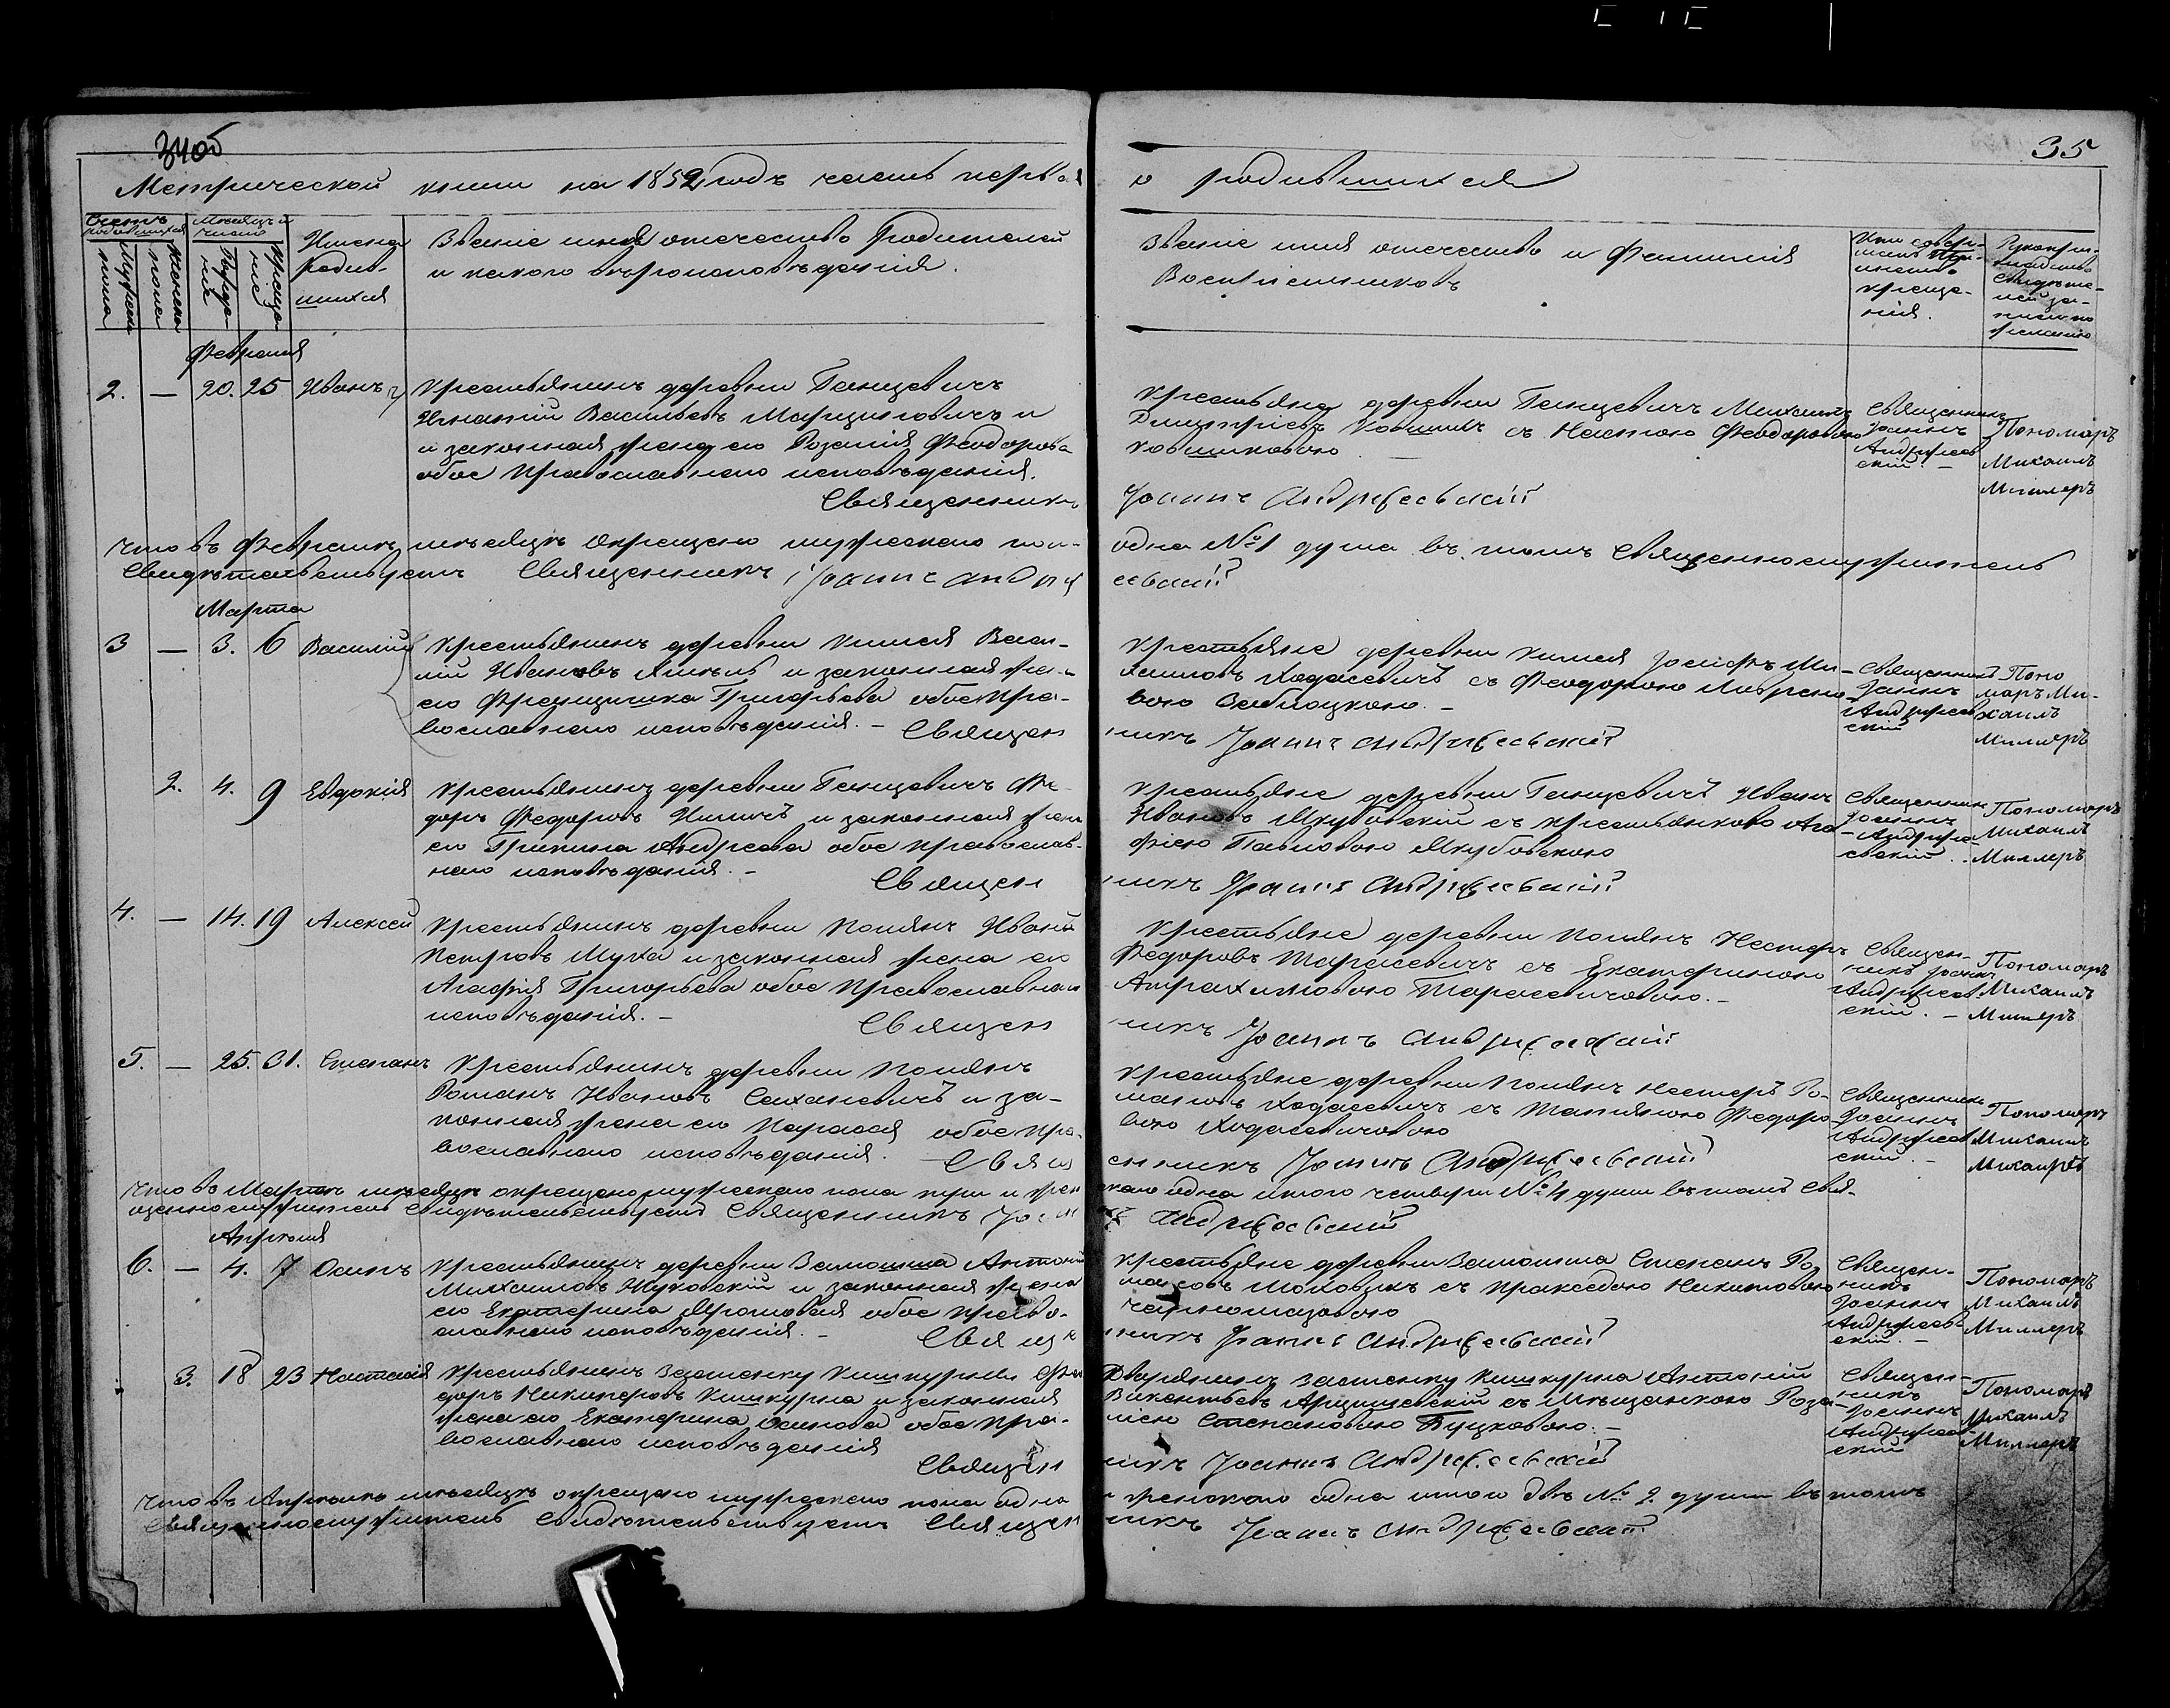 34об
35
Метрической книги на 1852 годъ часть первая
о родившихся
Счетъ родившихся
Мужеска пола
Женска пола
Месяцъ и число
Рожде-
нія
Креще
ніе
Имена
родив-
шихся
Званіе имя отечество Родителей
и какого вероисповѣданія.
Званіе имя отечество и Фамилія
Воспріемниковъ
Кто совер-
шалъ таи-
нство
креще-
нія.
Рукопри-
кладство
свидѣте-
лей за-
писи по
желанію
Февраля
2. — 20. 25 Иванъ
Крестьянинъ деревни Ганцевичъ
Игнатій Васильевъ Марциновичъ и
и законная жена его Розалія Феодорова
обое Православнаго исповѣданія.
Священникъ
Крестьяне деревни Ганцевичъ Михаилъ
Дмитріевъ Ковшикъ съ Настою Феодоровою
Ковшиковою
Іоаннъ Андреевскій
Священникъ
Іоаннъ
Андреев
скій. —
Пономарь
Михаилъ
Миллеръ
Что въ Февралѣ мѣсяцѣ окрещено мужескаго пол-
одна №1 душа въ томъ Священнослужитель
Свидѣтельствуетъ Священникъ Іоаннъ Андре
евскій
Марта
3 — 3. 6 Василий
Крестьянинъ деревни
Васи-
лій Ивановъ и законная же-
его Францишка Григорьева обое Пра-
вославнаго исповѣданія. — Священ
Крестьяне деревни Іосифъ Ми-
хаиловъ Ходасевичъ съ Феодорою
вою Заблоцкою. —
никъ Іоаннъ Андреевскій
Священникъ
Іоаннъ
Андреев
скій
Поно
марь Ми-
хаилъ
Миллеръ
2. 4. 9 Евдокія
Крестьянинъ деревни Ганцевичъ Фе-
доръ Федоровъ и законная жена
его Грипина Андреева обое Православ-
наго исповѣданія. —
Священ
Крестьяне деревни Ганцевичъ Иванъ
Ивановъ Якубовскій съ крестьянкою Ага-
фіею Павловою Якубовскою
никъ Іоаннъ Андреевскій
Священник
Іоаннъ
Андрее-
вскій. —
Пономарь
Михаилъ
Миллеръ
4. — 14. 19 Алексей
Крестьянинъ деревни Полянъ Иванъ
Петровъ Муха и законная жена его
Агафія Григорьева обое Православнаго
исповѣданія. —
Священ
Крестьяне деревни Полянъ Нестеръ
Федоровъ Тарасевичъ съ Екатериною
Тарасевичовою. —
никъ Іоаннъ Андреевскій
Священ-
никъ Іоаннъ
Андреев
скій. —
Пономарь
Михаилъ
Миллеръ
5. — 25. 31. Степанъ
Крестьянинъ деревни Полянъ
Романъ Ивановъ Саханевичъ и за-
конная жена его обое Пра-
вославнаго исповѣданія.
Свящ
Крестьяне деревни Полянъ Нестеръ Ро-
мановъ Ходасевичъ съ Татіяною Федоро
вою Ходасевичовою
енникъ Іоаннъ Андреевскій
Священникъ
Іоаннъ
Андреев
скій. —
Пономарь
Михаилъ
Миллеръ
Что въ Мартѣ мѣсяцѣ окрещено мужескаго пола три и жен
скаго одна итого четыри №4 души въ томъ Свя-
щеннослужитель Свидѣтельствуетъ Священникъ Іоан
ъ Андреевскій
Апрѣля
6. — 4. 7 Осипъ
Крестьянинъ деревни Замошша Антоній
Михаиловъ Жуковскій и законная жена
его Екатерина обое Право-
славнаго исповѣданія. —
Свящ
Крестьяне деревни Замошша Степанъ Ро-
мановъ съ Пракседою Никитовою
никъ Іоаннъ Андреевскій
Священ-
никъ
Іоаннъ
Андреев-
скій. —
Пономарь
Михаилъ
Миллеръ
3. 18 23 Настасія
Крестьянинъ застенку Кишкурны Фео
доръ Никиперовъ Кишкурна и законная
жена его Екатерина Осипова обое Пра-
вославнаго исповѣданія
Священ
Дворянинъ застенку Кишкурна Антоній
Викентьевъ Арцишевскій съ Мѣщанкою Роза-
ліею Степановою Буцковою. —
никъ Іоаннъ Андреевскій
Священ-
никъ
Іоаннъ
Андреев-
скій
Пономарь
Михаилъ
Миллеръ
Что въ Апрѣлѣ мѣсяцѣ окрещено мужескаго пола одна
и женскаго одна итого двѣ №2 души въ томъ
Священнослужитель Свидѣтельствуетъ Священ
никъ Іоаннъ Андреевскій